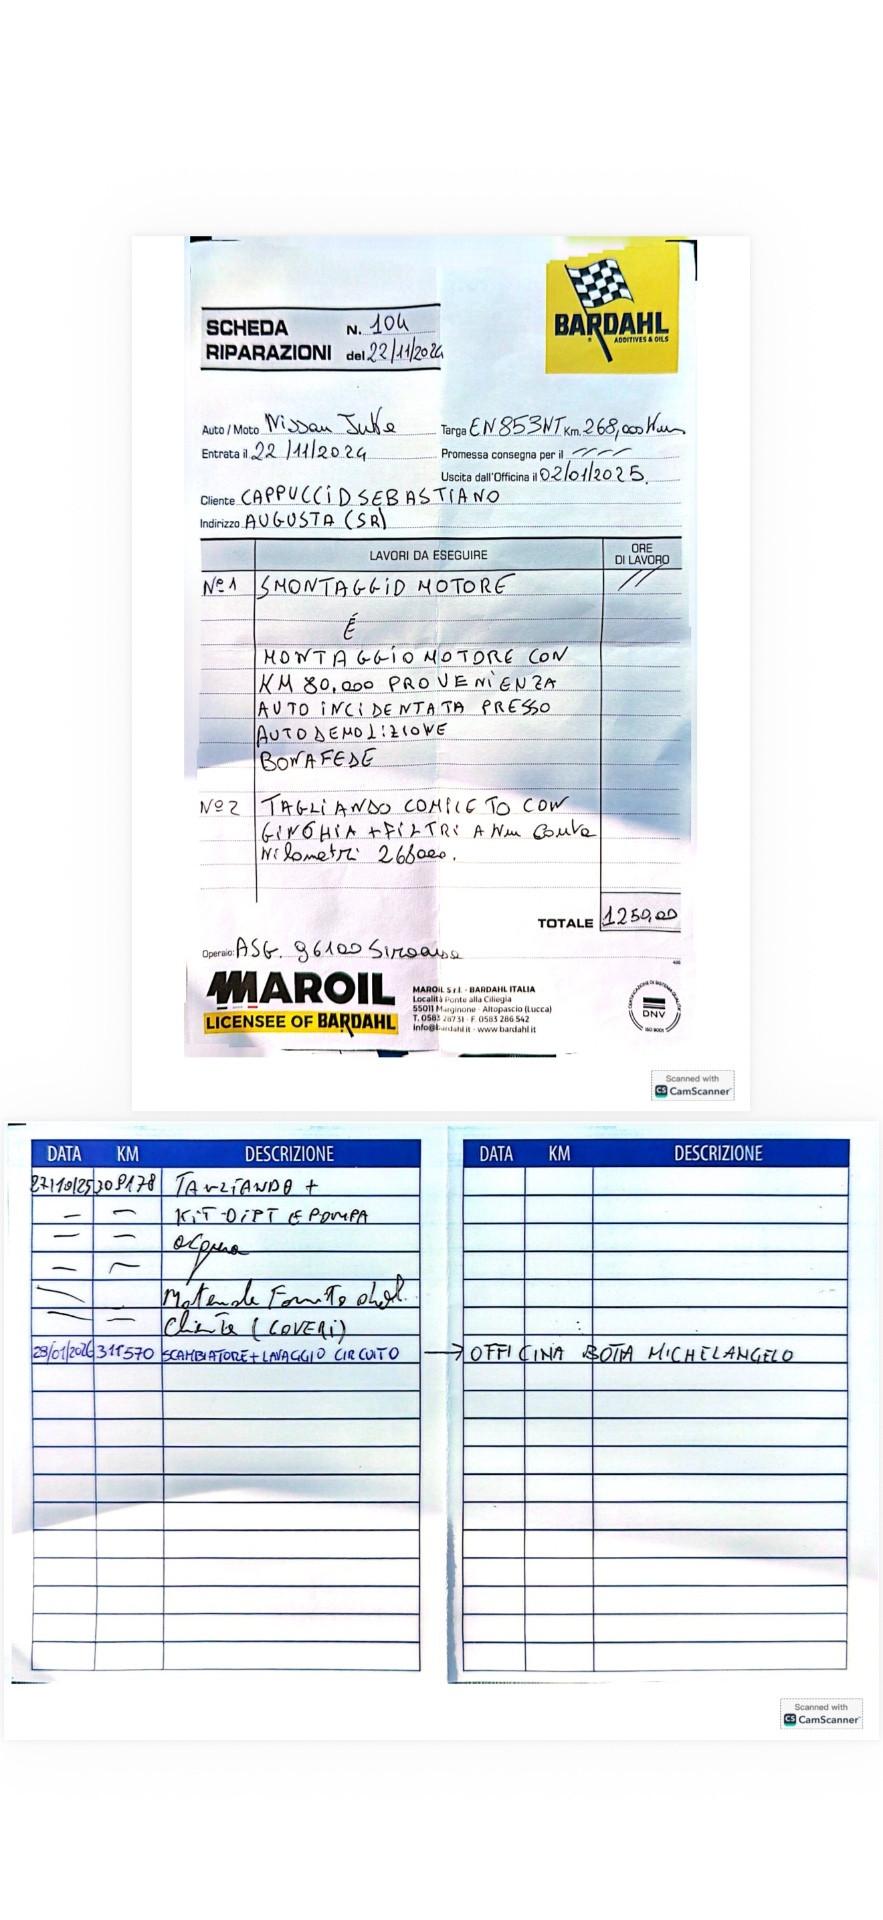 SCHEDA
RIPARAZIONI
N. 104
del 22/11/2024
BARDAHL
ADDITIVES & OILS
Auto / Moto Nissan Juke Targa EN853NT Km. 268,000 Km
Entrata il 22/11/2024 Promessa consegna per il
Uscita dall'Officina il 02/01/2025.
Cliente CAPPUCCIO SEBASTIANO
Indirizzo AUGUSTA (SR)
LAVORI DA ESEGUIRE ORE DI LAVORO
Nº1 SMONTAGGIO MOTORE
É
MONTAGGIO MOTORE CON
KM 80,000 PROVENIENZA
AUTO INCIDENTATA PRESSO
AUTODEMOLIZIONE
BONAFEDE
Nº2 TAGLIANDO COMPLETO CON
CINGHIA + FILTRI A Km Conta
Kilometri 268000.
TOTALE 1250,00
Operaio: ASG. 96100 Siracusa
MAROIL
LICENSEE OF BARDAHL
MAROIL S.r.l. - BARDAHL ITALIA
Località Ponte alla Ciliegia
55011 Marginone - Altopascio (Lucca)
T. 0583 28731 - F. 0583 286 542
info@bardahl.it - www.bardahl.it
DNV
ISO 9001
Scanned with
CS CamScanner
DATA KM DESCRIZIONE DATA KM DESCRIZIONE
27/10/25 309178 TAGLIANDO +
KIT DIST E POMPA
acqua
Materiale Fornito dal
Cliente (COVERI)
29/01/2026 311570 SCAMBIATORE + LAVAGGIO CIRCUITO → OFFICINA BOTA MICHELANGELO
Scanned with
CS CamScanner